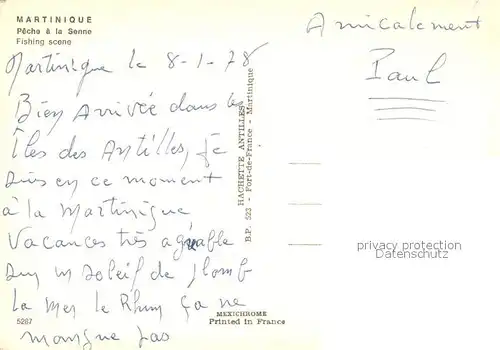 MARTINIQUE
Pêche à la Senne
Fishing scene
Martinique le 8-1-78
Bien Arrivée dans les
Îles des Antilles, je
suis en ce moment
à la Martinique
Vacances très agréable
sous un soleil de plomb
la Mer le Rhum ça ne
manque pas
5267
Amicalement
Paul
HACHETTE ANTILLES
B.P. 523 - Fort-de-France - Martinique
MEXICHROME
Printed in France
privacy protection
Datenschutz